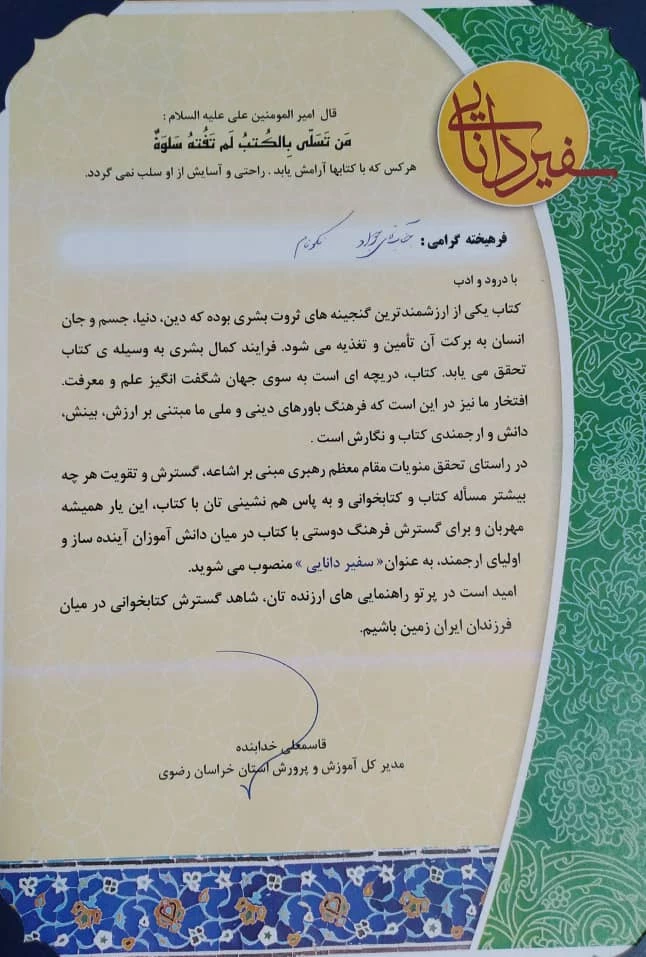 سفیر دانایی
قال امیر المومنین علی علیه السلام :
مَن تَسَلّى بِالكُتبُ لَم تَفُتهُ سَلوَةٌ
هرکس که با کتابها آرامش یابد ، راحتی و آسایش از او سلب نمی گردد.
فرهیخته گرامی : جناب آقای جواد نکونام
با درود و ادب
کتاب یکی از ارزشمندترین گنجینه های ثروت بشری بوده که دین، دنیا، جسم و جان
انسان به برکت آن تأمین و تغذیه می شود. فرایند کمال بشری به وسیله ی کتاب
تحقق می یابد. کتاب، دریچه ای است به سوی جهان شگفت انگیز علم و معرفت.
افتخار ما نیز در این است که فرهنگ باورهای دینی و ملی ما مبتنی بر ارزش، بینش،
دانش و ارجمندی کتاب و نگارش است .
در راستای تحقق منویات مقام معظم رهبری مبنی بر اشاعه، گسترش و تقویت هر چه
بیشتر مسأله کتاب و کتابخوانی و به پاس هم نشینی تان با کتاب، این یار همیشه
مهربان و برای گسترش فرهنگ دوستی با کتاب در میان دانش آموزان آینده ساز و
اولیای ارجمند، به عنوان« سفیر دانایی » منصوب می شوید.
امید است در پرتو راهنمایی های ارزنده تان، شاهد گسترش کتابخوانی در میان
فرزندان ایران زمین باشیم.
قاسمعلی خدابنده
مدیر کل آموزش و پرورش استان خراسان رضوی